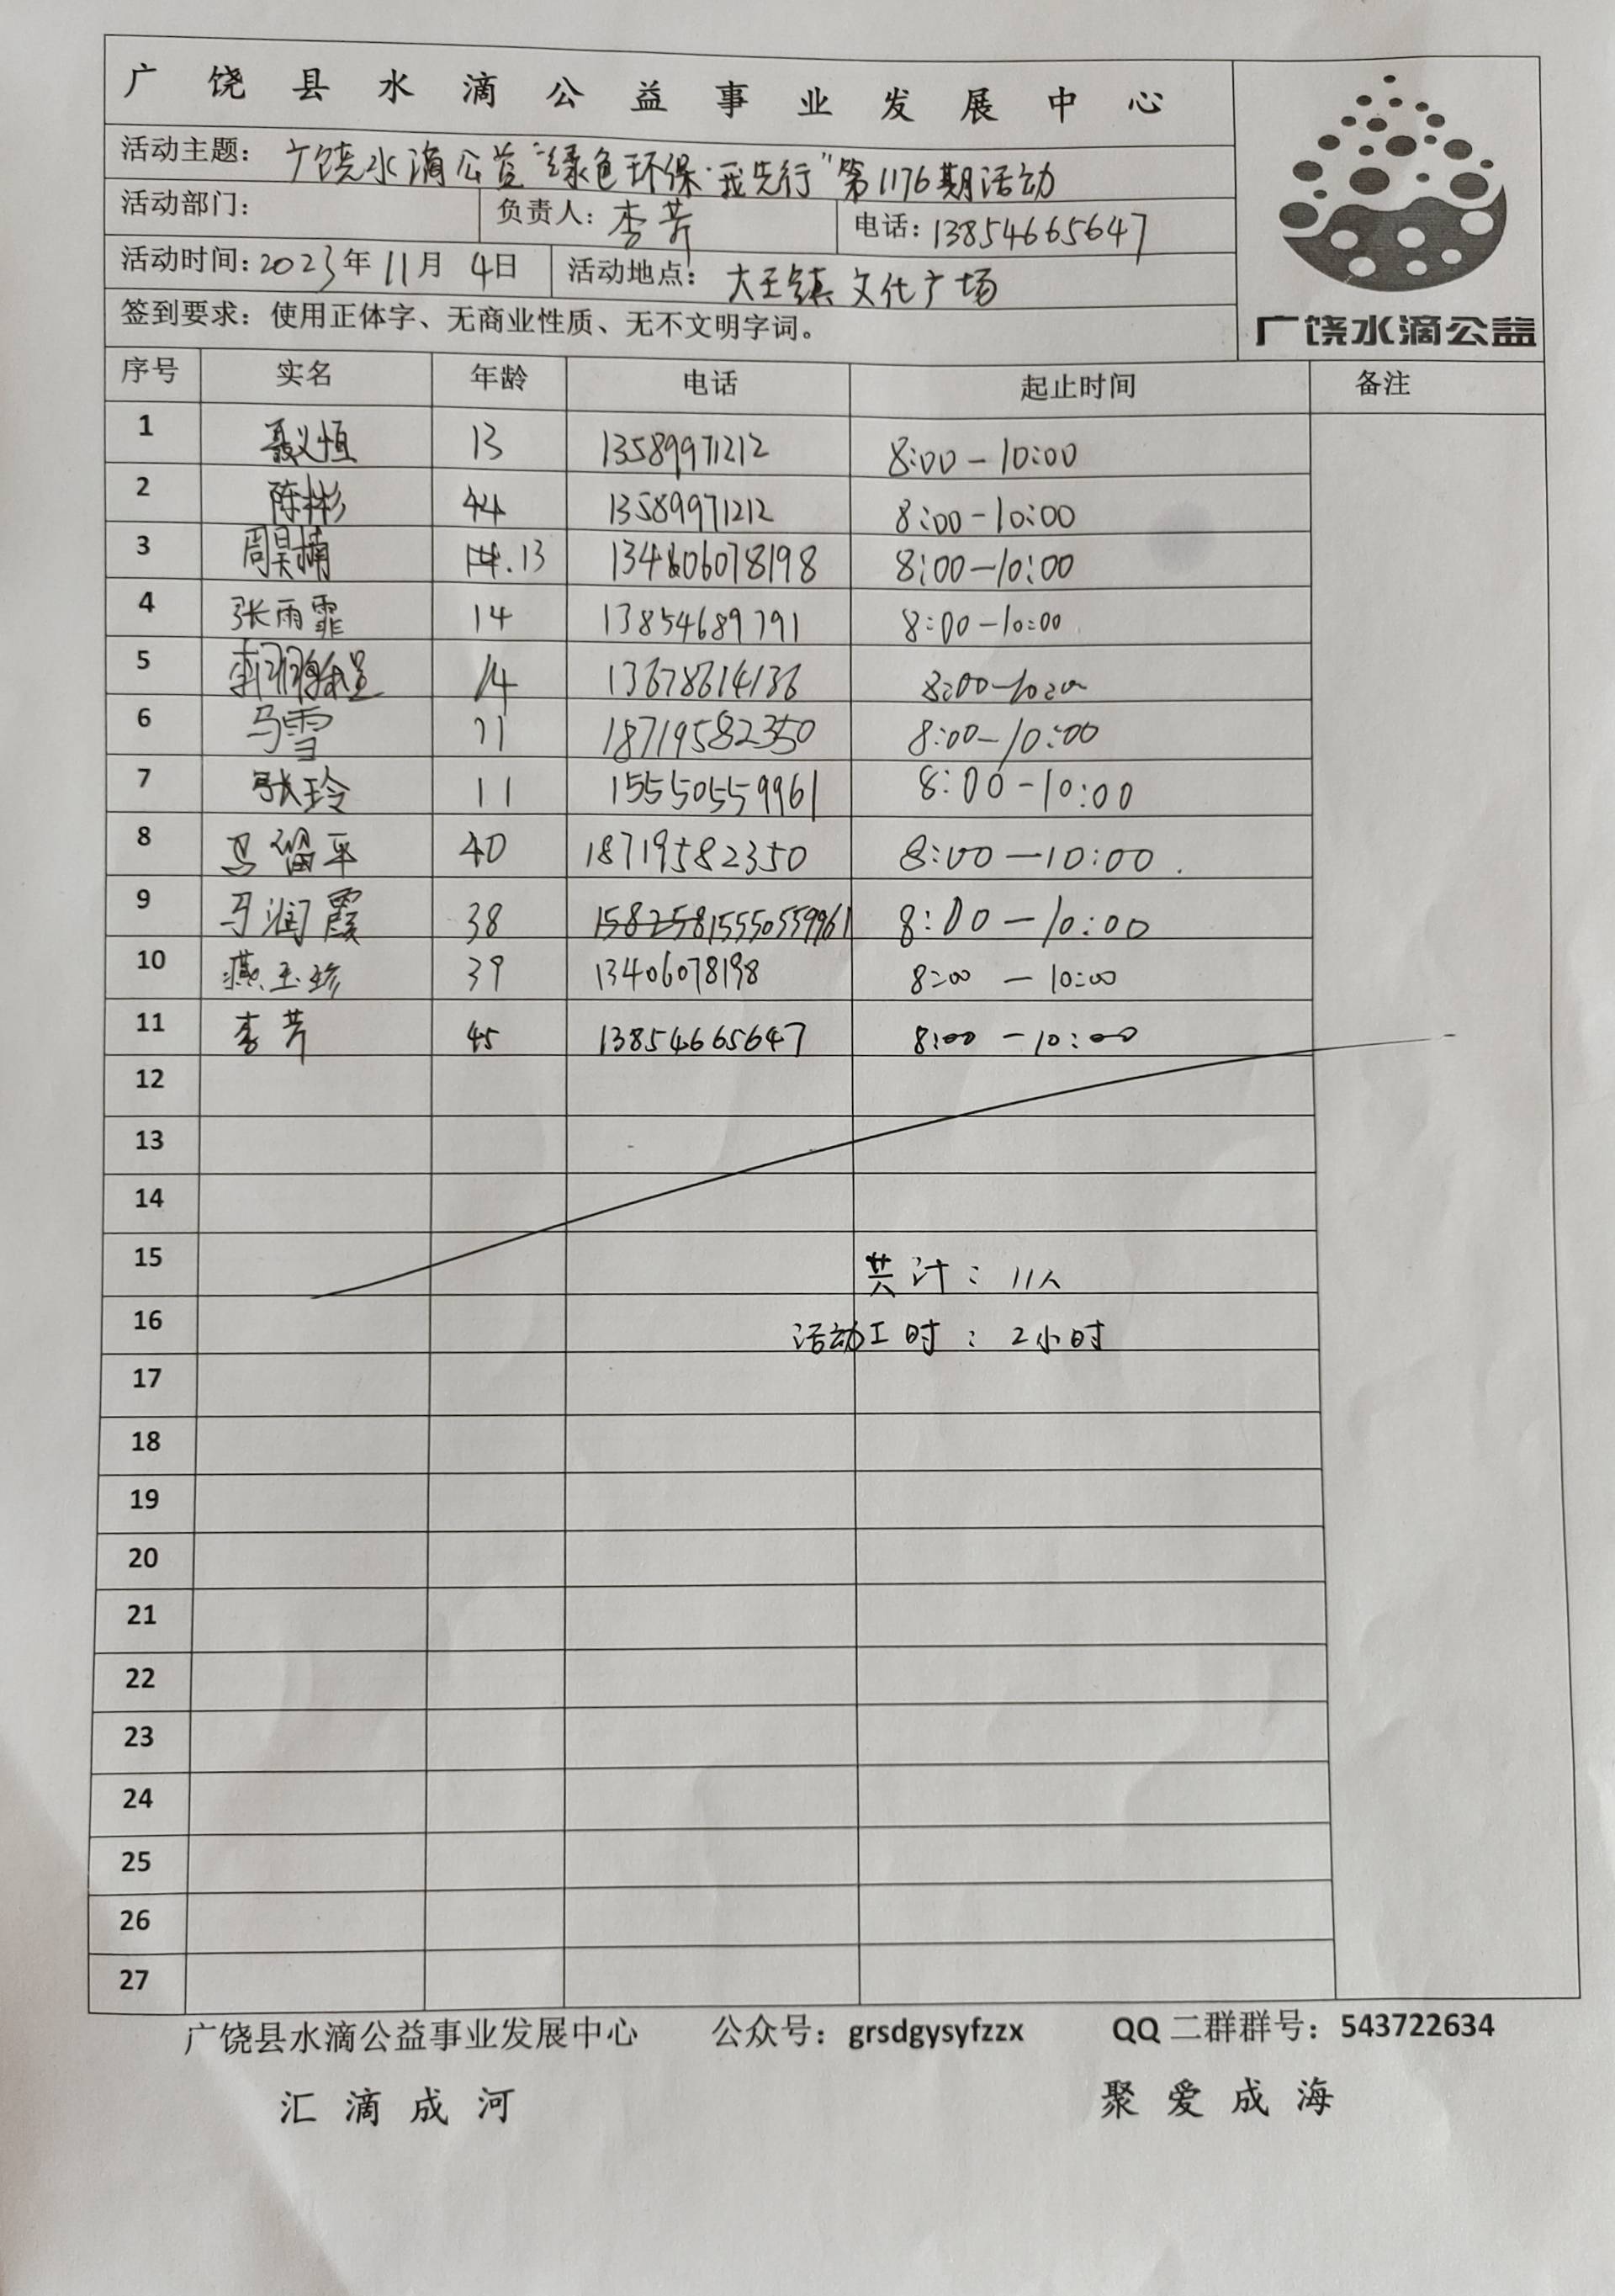 广饶县水滴公益事业发展中心
活动主题：广饶水滴公益“绿色环保·我先行”第1176期活动
活动部门： 负责人：李芳 电话：13854665647
活动时间：2023年11月4日 活动地点：大王镇文化广场
签到要求：使用正体字、无商业性质、无不文明字词。
广饶水滴公益
序号 实名 年龄 电话 起止时间 备注
1 聂义恒 13 13589971212 8:00-10:00
2 陈彬 44 13589971212 8:00-10:00
3 周昊楠 13 8:00-10:00
4 张雨霏 14 13854689791 8:00-10:00
5 14 13678614136 8:00-10:00
6 马雪 11 18719582350 8:00-10:00
7 张玲 11 15550559961 8:00-10:00
8 马留平 40 18719582350 8:00-10:00.
9 马润霞 38 15550559961 8:00-10:00
10 燕玉珍 39 13406078198 8:00-10:00
11 李芳 45 13854665647 8:00-10:00
12
13
14
15 共计：11人
16 活动工时：2小时
17
18
19
20
21
22
23
24
25
26
27
广饶县水滴公益事业发展中心 公众号：grsdgysyfzzx QQ二群群号：543722634
汇滴成河 聚爱成海